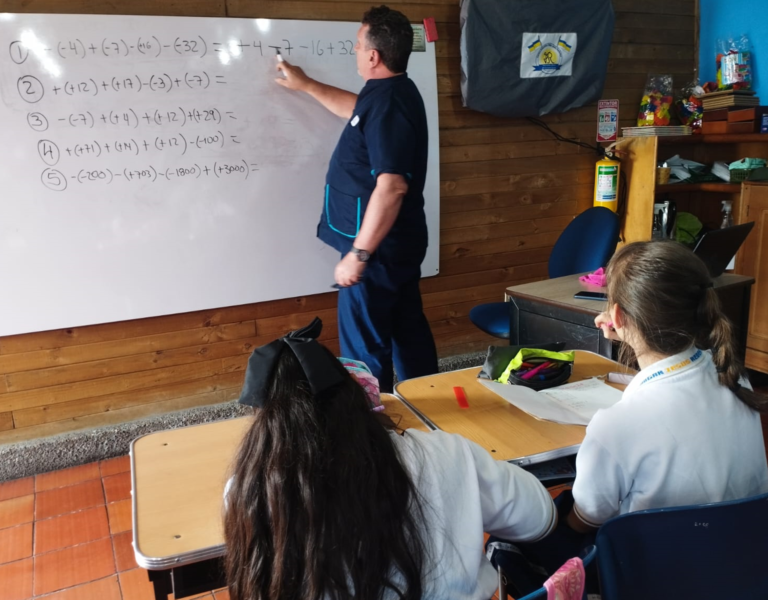 ① -(-4)+(-7)-(+16)-(-32) = + 4 - 7 - 16 + 32
② +(+12)+(+17)-(-3)+(-7) =
③ -(-7)+(+4)+(+12)+(+29) =
④ +(+71)+(+14)+(+12)-(-100) =
⑤ -(-200)-(+703)-(-1800)+(+3000) =